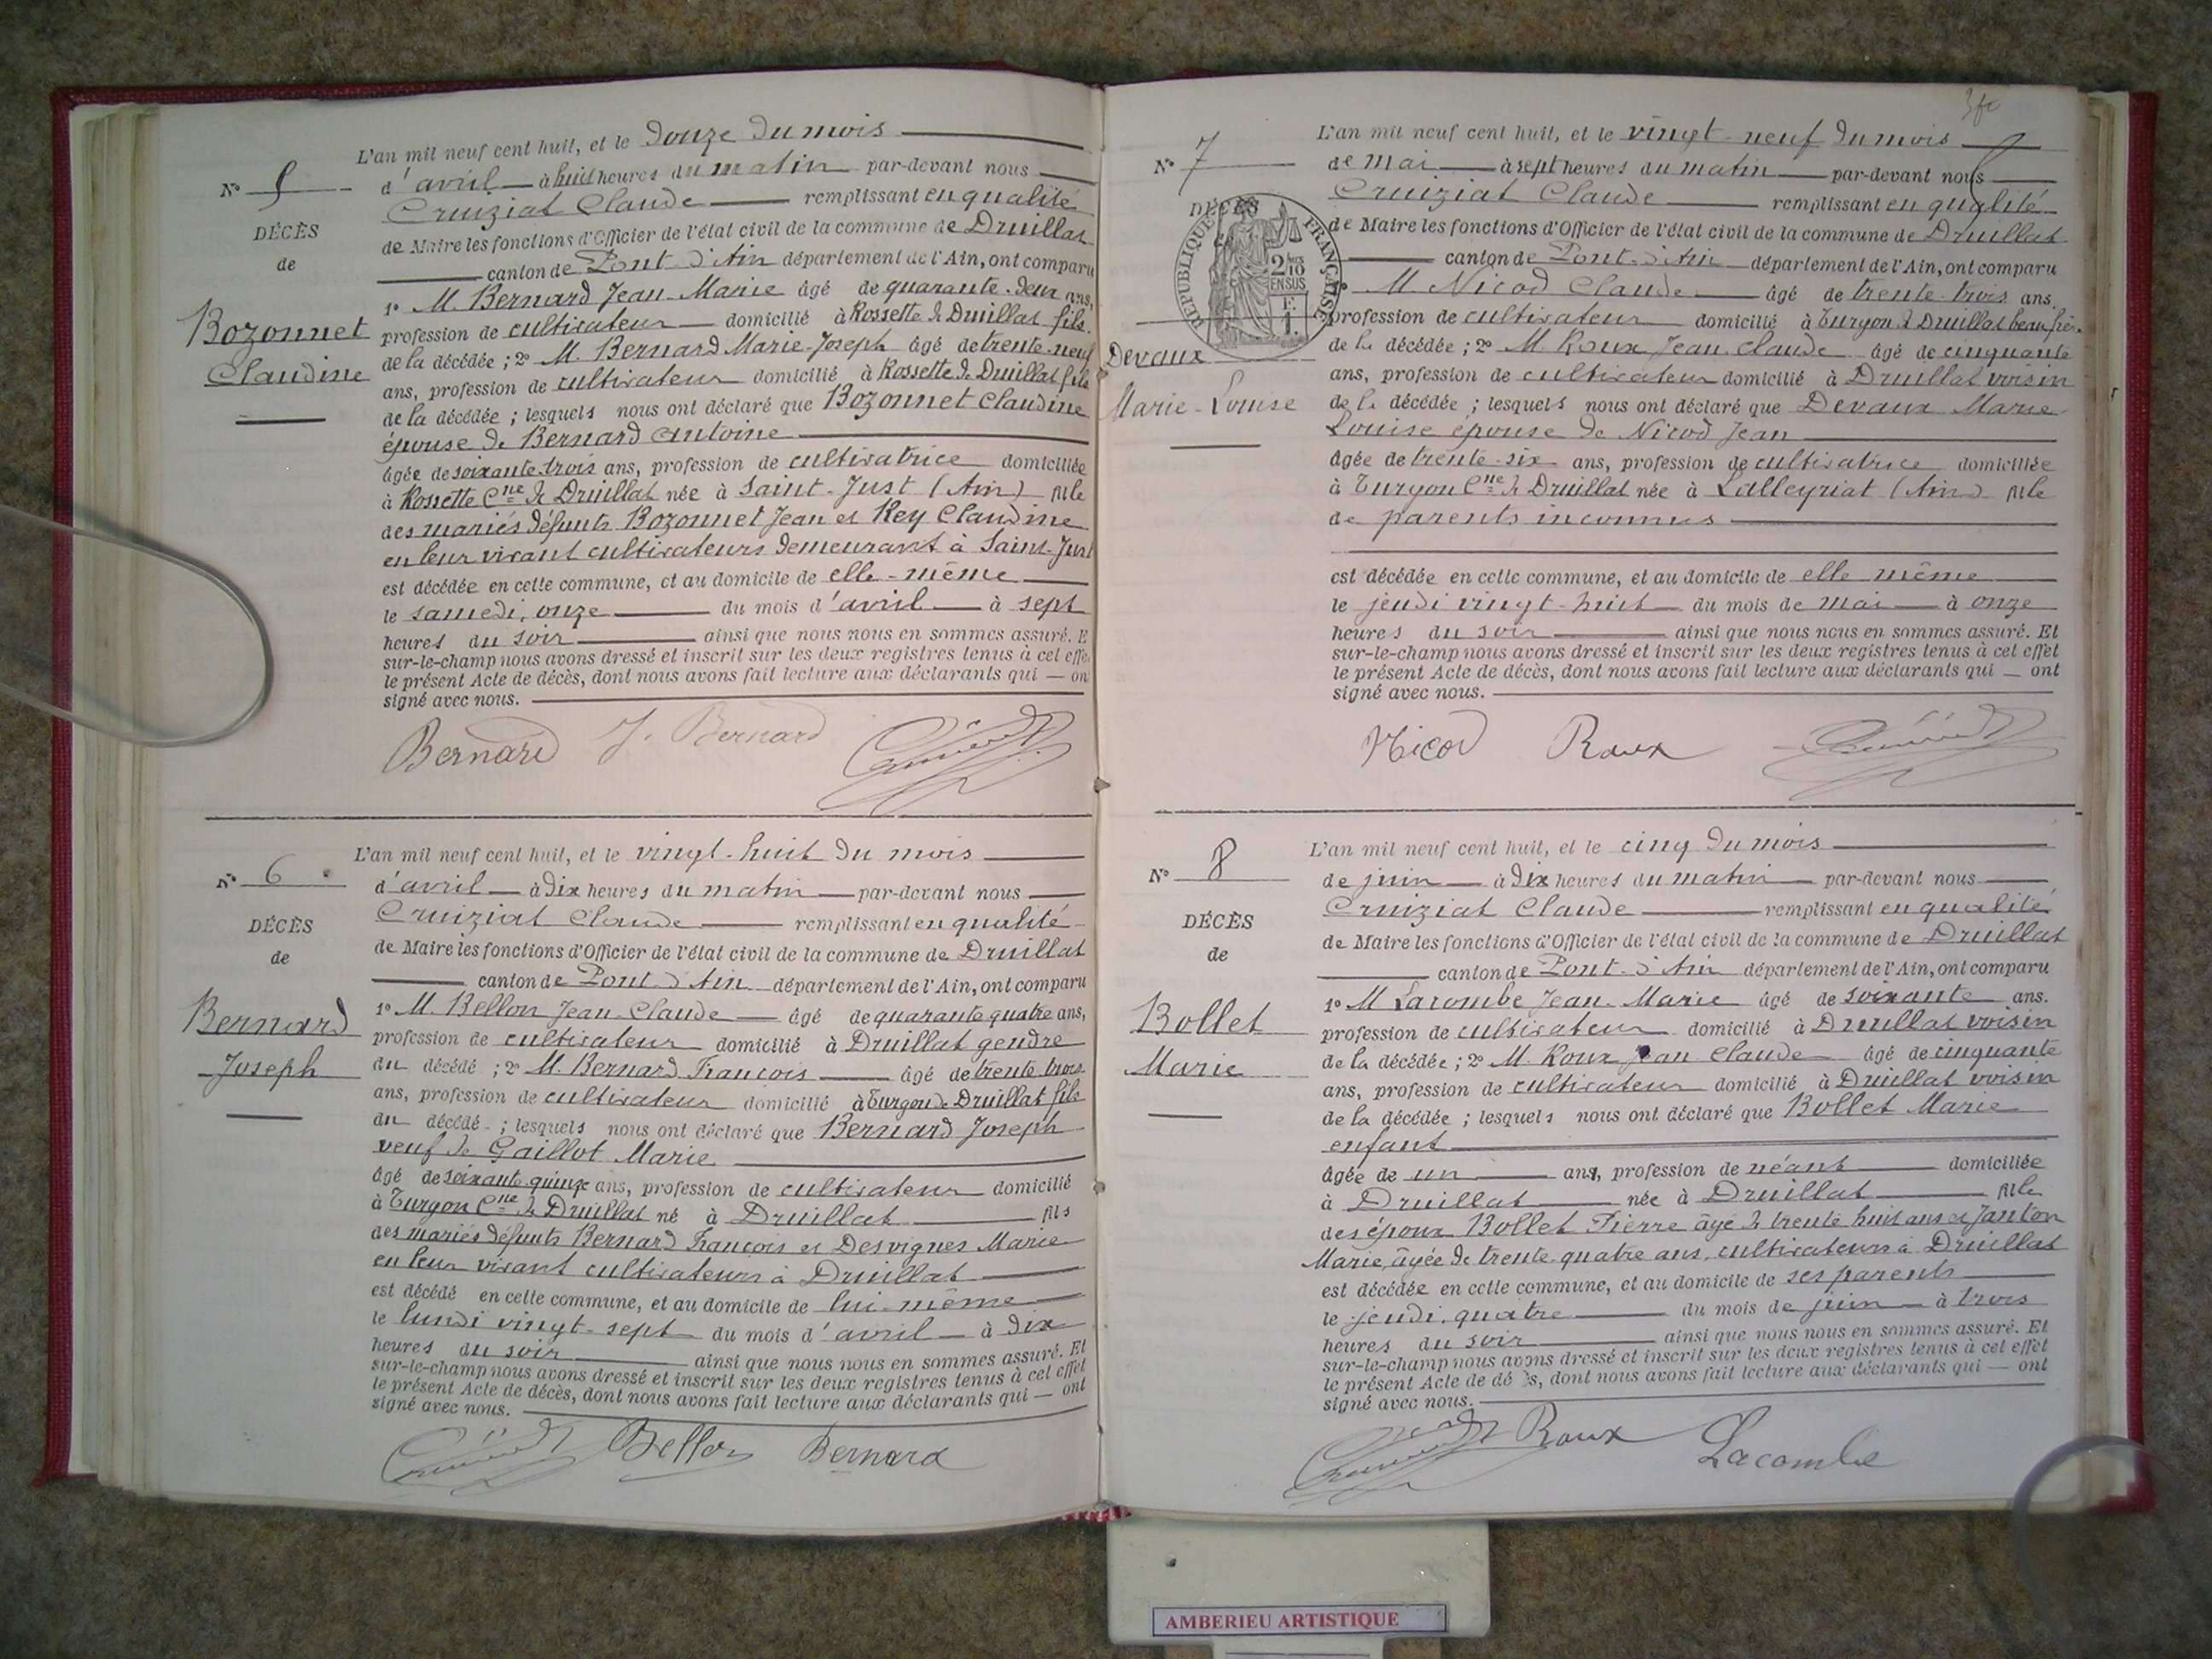 L'an mil neuf cent huit, et le douze du mois
N° 5
d'avril à huit heures du matin par-devant nous
Cruiziat Claude remplissant en qualité
DÉCÈS
de Maire les fonctions d'Officier de l'état civil de la commune de Druillat
de
canton de Pont-d'Ain département de l'Ain, ont comparu
1° M. Bernard Jean-Marie âgé de quarante-deux ans,
Bozonnet
profession de cultivateur domicilié à Rossette de Druillat fils
de la décédée ; 2° M. Bernard Marie-Joseph âgé de trente-neuf
Claudine
ans, profession de cultivateur domicilié à Rossette de Druillat fils
de la décédée ; lesquels nous ont déclaré que Bozonnet Claudine
épouse de Bernard Antoine
âgée de soixante-trois ans, profession de cultivatrice domiciliée
à Rossette Cne de Druillat née à Saint-Just (Ain) fille
des mariés défunts Bozonnet Jean et Rey Claudine
en leur vivant cultivateurs demeurant à Saint-Just
est décédée en cette commune, et au domicile de elle-même
le samedi, onze du mois d'avril à sept
heures du soir ainsi que nous nous en sommes assuré. E
sur-le-champ nous avons dressé et inscrit sur les deux registres tenus à cet effe
le présent Acte de décès, dont nous avons fait lecture aux déclarants qui — on
signé avec nous.
Bernard J. Bernard
L'an mil neuf cent huit, et le vingt-huit du mois
N° 6
d'avril à dix heures du matin par-devant nous
Cruiziat Claude remplissant en qualité
DÉCÈS
de Maire les fonctions d'Officier de l'état civil de la commune de Druillat
de
canton de Pont-d'Ain département de l'Ain, ont comparu
1° M. Bellon Jean-Claude âgé de quarante quatre ans,
Bernard
profession de cultivateur domicilié à Druillat gendre
du décédé ; 2° M. Bernard François âgé de trente trois
Joseph
ans, profession de cultivateur domicilié à Turgon de Druillat fils
du décédé ; lesquels nous ont déclaré que Bernard Joseph
veuf de Gaillot Marie
âgé de soixante-quinze ans, profession de cultivateur domicilié
à Turgon Cne de Druillat né à Druillat fils
des mariés défunts Bernard François et Desvignes Marie
en leur vivant cultivateurs à Druillat
est décédé en cette commune, et au domicile de lui-même
le lundi vingt-sept du mois d'avril à dix
heures du soir ainsi que nous nous en sommes assuré. Et
sur-le-champ nous avons dressé et inscrit sur les deux registres tenus à cet effet
le présent Acte de décès, dont nous avons fait lecture aux déclarants qui — ont
signé avec nous.
Bellon Bernard
L'an mil neuf cent huit, et le vingt-neuf du mois
N° 7
de mai à sept heures du matin par-devant nous
Cruiziat Claude remplissant en qualité
DÉCÈS
RÉPUBLIQUE FRANÇAISE
2/10 EN SUS
de Maire les fonctions d'Officier de l'état civil de la commune de Druillat
canton de Pont-d'Ain département de l'Ain, ont comparu
M. Nicod Claude âgé de trente-trois ans.
profession de cultivateur domicilié à Turgon de Druillat beau frère
Devaux
de la décédée ; 2° M. Roux Jean Claude âgé de cinquante
ans, profession de cultivateur domicilié à Druillat voisin
Marie-Louise
de la décédée ; lesquels nous ont déclaré que Devaux Marie
Louise épouse de Nicod Jean
âgée de trente-six ans, profession de cultivatrice domiciliée
à Turgon Cne de Druillat née à Lalleyriat (Ain) fille
de parents inconnus
est décédée en cette commune, et au domicile de elle même
le jeudi vingt-huit du mois de mai à onze
heures du soir ainsi que nous nous en sommes assuré. Et
sur-le-champ nous avons dressé et inscrit sur les deux registres tenus à cet effet
le présent Acte de décès, dont nous avons fait lecture aux déclarants qui — ont
signé avec nous.
Nicod Roux
L'an mil neuf cent huit, et le cinq du mois
N° 8
de juin à dix heures du matin par-devant nous
Cruiziat Claude remplissant en qualité
DÉCÈS
de Maire les fonctions d'Officier de l'état civil de la commune de Druillat
de
canton de Pont-d'Ain département de l'Ain, ont comparu
1° M Lacombe Jean-Marie âgé de soixante ans.
Bollet
profession de cultivateur domicilié à Druillat voisin
Marie
de la décédée ; 2° M. Roux Jean Claude âgé de cinquante
ans, profession de cultivateur domicilié à Druillat voisin
de la décédée ; lesquels nous ont déclaré que Bollet Marie
enfant
âgée de un ans, profession de néant domiciliée
à Druillat née à Druillat fille
des époux Bollet Pierre âgé de trente huit ans et Janton
Marie, âgée de trente-quatre ans, cultivateurs à Druillat
est décédée en cette commune, et au domicile de ses parents
le jeudi, quatre du mois de juin à trois
heures du soir ainsi que nous nous en sommes assuré. Et
sur-le-champ nous avons dressé et inscrit sur les deux registres tenus à cet effet
le présent Acte de décès, dont nous avons fait lecture aux déclarants qui — ont
signé avec nous.
Roux Lacombe
AMBERIEU ARTISTIQUE